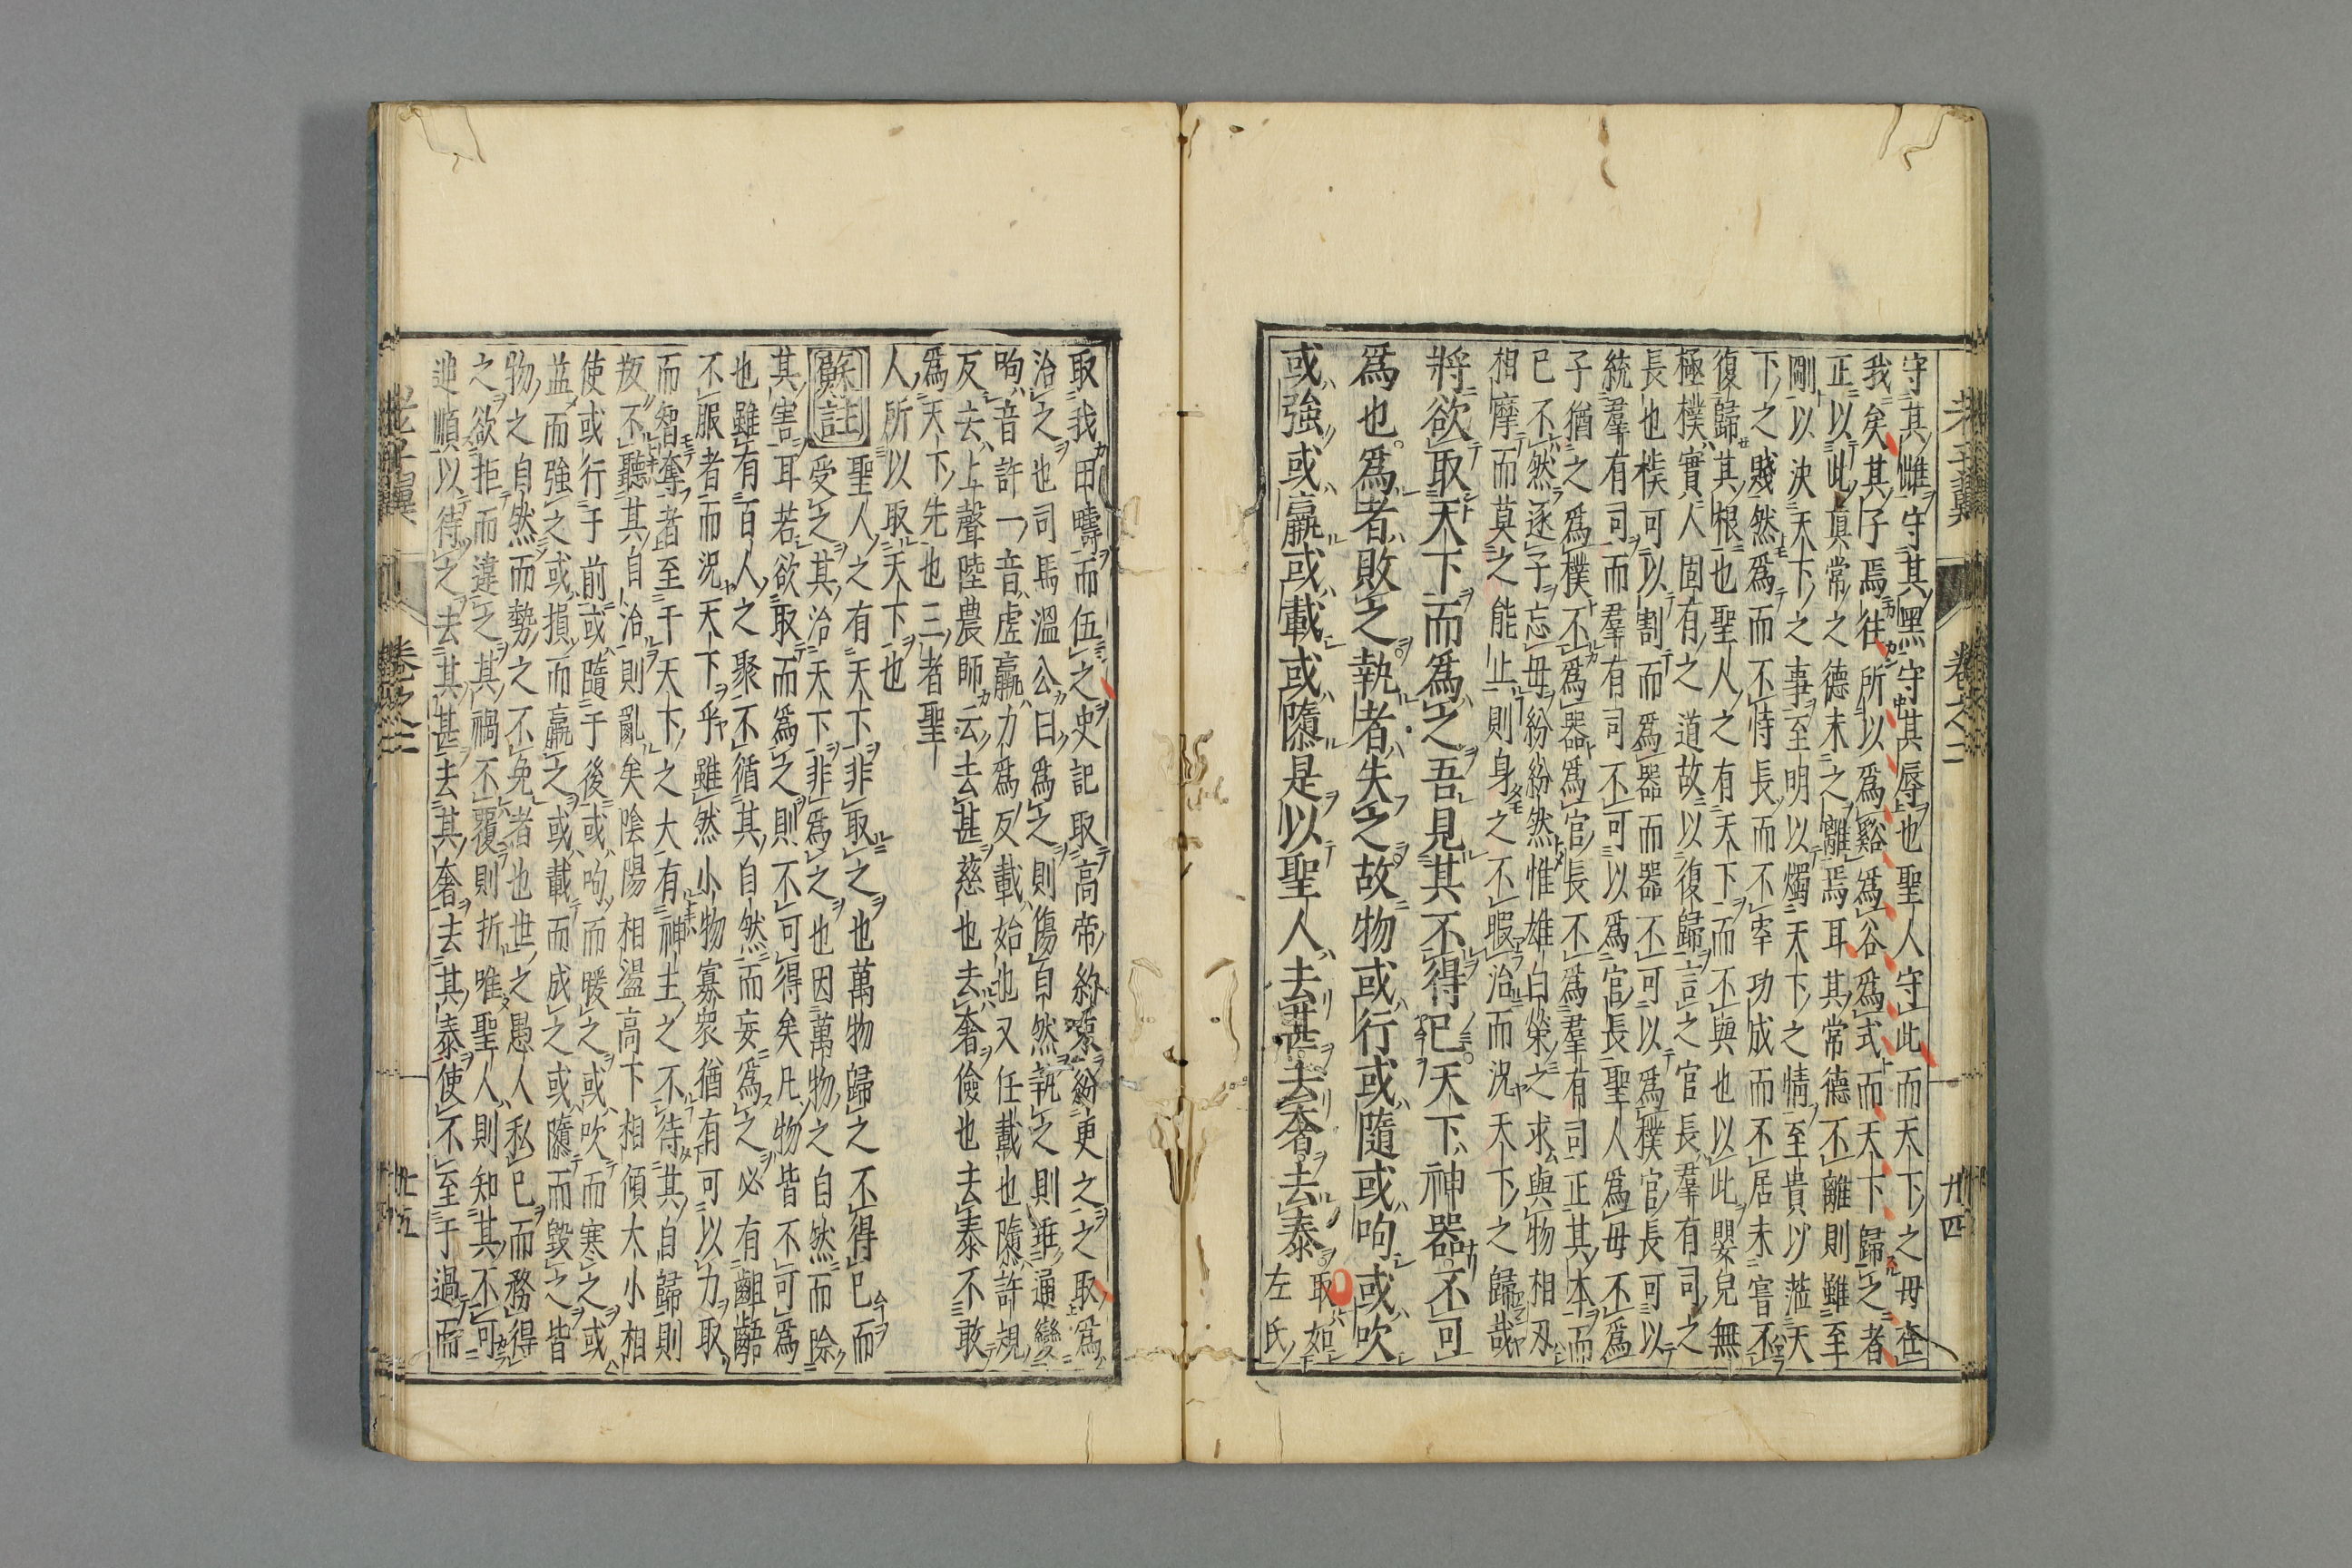 老子翼 卷之二 廿四
守其雌守其黑守其辱也聖人守此而天下之母在
我矣其子焉往所以爲谿爲谷爲式而天下歸之者
正以此眞常之德未之離焉耳其常德不離則雖至
剛以決天下之事至明以燭天下之情至貴以蒞天
下之賤然爲而不恃長而不宰功成而不居未嘗不
復歸其根也聖人之有天下而不與也以此嬰兒無
極樸實人固有之道故以復歸言之官長羣有司之
長也樸可以割而爲器而器不可以爲樸官長可以
統羣有司而羣有司不可以爲官長聖人爲母不爲
子猶之爲樸不爲器爲官長不爲羣有司正其本而
已不然逐子忘母紛紛然惟雄白榮之求與物相刃
相摩而莫之能止則身之不暇治而況天下之歸哉
將欲取天下而爲之吾見其不得已天下神器不可
爲也爲者敗之執者失之故物或行或隨或呴或吹
或強或羸或載或隳是以聖人去甚去奢去泰
取如
左氏
取我田疇而伍之史記取高帝約束紛更之之取爲
治之也司馬溫公曰爲之則傷自然執之則乖通變
呴音許一音虛羸力爲反載始也又任載也隳許規
反去上聲陸農師云去甚慈也去奢儉也去泰不敢
爲天下先也三者聖
人所以取天下也
蘇註 聖人之有天下非取之也萬物歸之不得已而
受之其治天下非爲之也因萬物之自然而除
其害耳若欲取而爲之則不可得矣凡物皆不可爲
也雖有百人之聚不循其自然而妄爲之必有齟齬
不服者而況天下乎雖然小物寡衆猶有可以力取
而智奪者至于天下之大有神主之不待其自歸則
叛不聽其自治則亂矣陰陽相盪高下相傾大小相
使或行于前或隨于後或呴而暖之或吹而寒之或
益而強之或損而羸之或載而成之或隳而毀之皆
物之自然而勢之不免者也世之愚人私己而務得
之欲拒而違之其禍不覆則折唯聖人則知其不可
逆順以待之去其甚去其奢去其泰使不至于過而
老子翼 卷之二 廿五